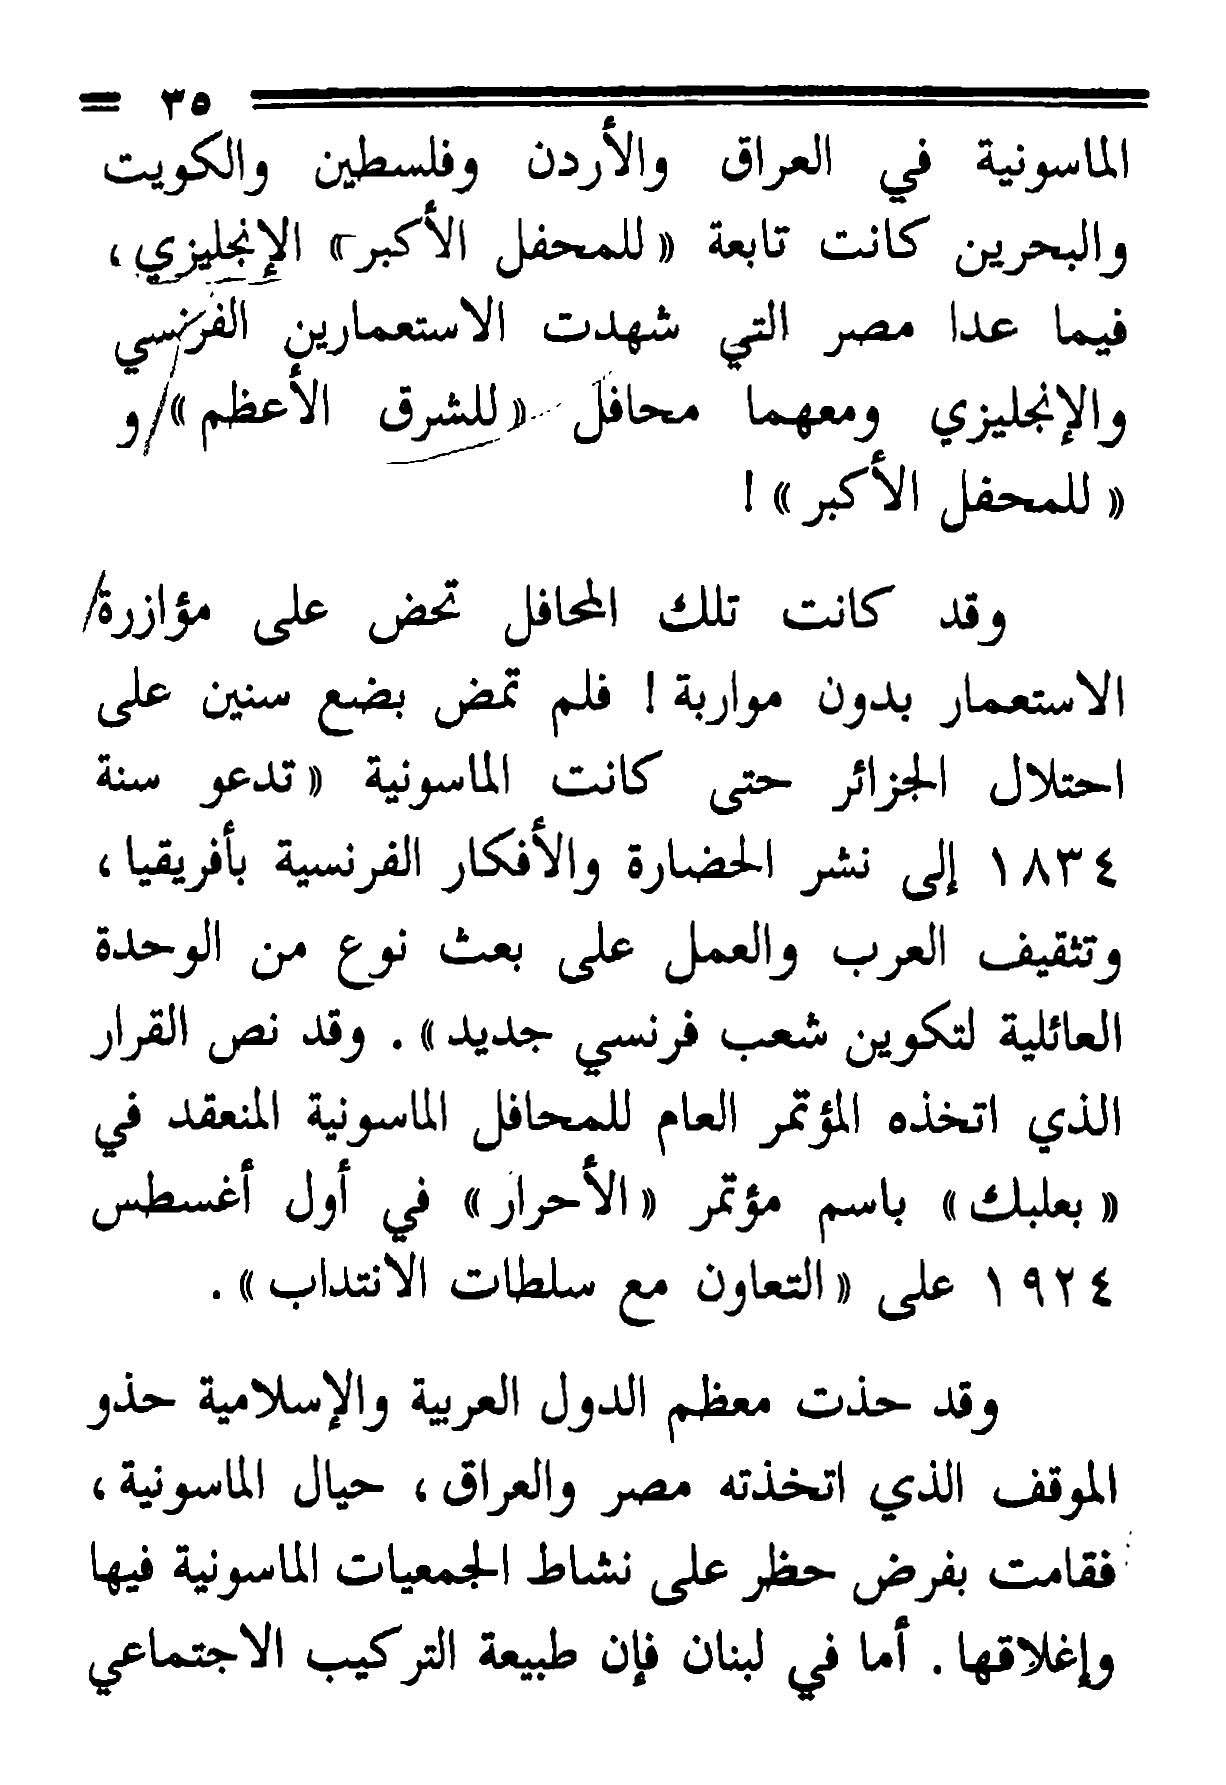 = ٣٥
الماسونية في العراق والأردن وفلسطين والكويت
والبحرين كانت تابعة «للمحفل الأكبر» الإنجليزي،
فيما عدا مصر التي شهدت الاستعمارين الفرنسي
والإنجليزي ومعهما محافل «للشرق الأعظم» و
«للمحفل الأكبر»!
وقد كانت تلك المحافل تحض على مؤازرة
الاستعمار بدون مواربة! فلم تمض بضع سنين على
احتلال الجزائر حتى كانت الماسونية «تدعو سنة
١٨٣٤ إلى نشر الحضارة والأفكار الفرنسية بأفريقيا،
وتثقيف العرب والعمل على بعث نوع من الوحدة
العائلية لتكوين شعب فرنسي جديد». وقد نص القرار
الذي اتخذه المؤتمر العام للمحافل الماسونية المنعقد في
«بعلبك» باسم مؤتمر «الأحرار» في أول أغسطس
١٩٢٤ على «التعاون مع سلطات الانتداب».
وقد حذت معظم الدول العربية والإسلامية حذو
الموقف الذي اتخذته مصر والعراق، حيال الماسونية،
فقامت بفرض حظر على نشاط الجمعيات الماسونية فيها
وإغلاقها. أما في لبنان فإن طبيعة التركيب الاجتماعي